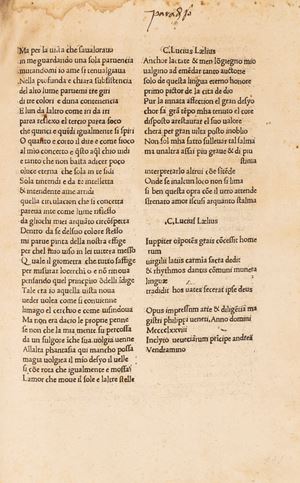 paradiso
Ma per la uista che saualoraua
in me guardando una sola paruencia
mutandomi io ame si trauaglaua
Nella profonda e chiara subsistencia
del alto lume paruemi tre giri
di tre colori e duna contenencia
E lun da laltro como iri da iri
parea reflexo el terzo parea foco
che quinci e quindi igualmente si spiri
O quanto e corto il dire e come fioco
al mio concepto e q̃sto aq̃l chio uidi
e tanto che non basta adicer poco
O luce eterna che sola in te sidi
Sola tintendi e da te intelletta
& intendente ame aridi
quella circulacion che si concetta
parea inte como lume riflesso
da gliochi mei alquāto circōspecta
Dentro da se delsuo colore stesso
mi parue pinta della nostra effige
per chel mio uiso in lei tuttera messo
Qual e il gometra che tutto saffige
per misurar locerchi o e nō ritroua
pensando quel principio ōdelli īdige
Tale era io aquella uista noua
ueder uolea come si conuenne
limago el cerchio e como uisindoua
Ma non eran dacio le proprie penne
se non che la mia mente fu percossa
da un fulgore ī che sua uoglia uenne
Allalta phantasia qui mancho possa
magia uolgiea il mio desyo el uelle
si cōe rota che igualmente e mossa
Lamor che moue il sole e laltre stelle
C. Lucius Lælius
Anchor lactate & men lōgiegno mio
ualgino ad emēdar tanto auctore
Solo de questa lingua eterno honore
primo pictor di cita de dio
Pur la innata affection el gran desyo
chor disposto arestaurar el suo ualore
chera per gran uilta posto inoblio
Non fol mha fatto
ma unaltra assai piu graue & di
stima
interpretarlo altrui cōe sītēde
Onde se inalcun loco non si lima
si ben questa opra cōe il uerro attende
strenato amor iscusi arquanto stalma
.C. Lucius Lælius
Iuppiter oīpotēs
rum
uirgilii latiis carmia facta dedit
& rhythmos dantus cōmuni munera
linguæ
tradidit hos uates fecerat ipse deus
Opus impressuꝫ arte & diligētia ma
gistri philippi ueneti, Anno domini
Mcccclxxviii
Inclyto uenetiarum prīcipe andrea
Vendramino